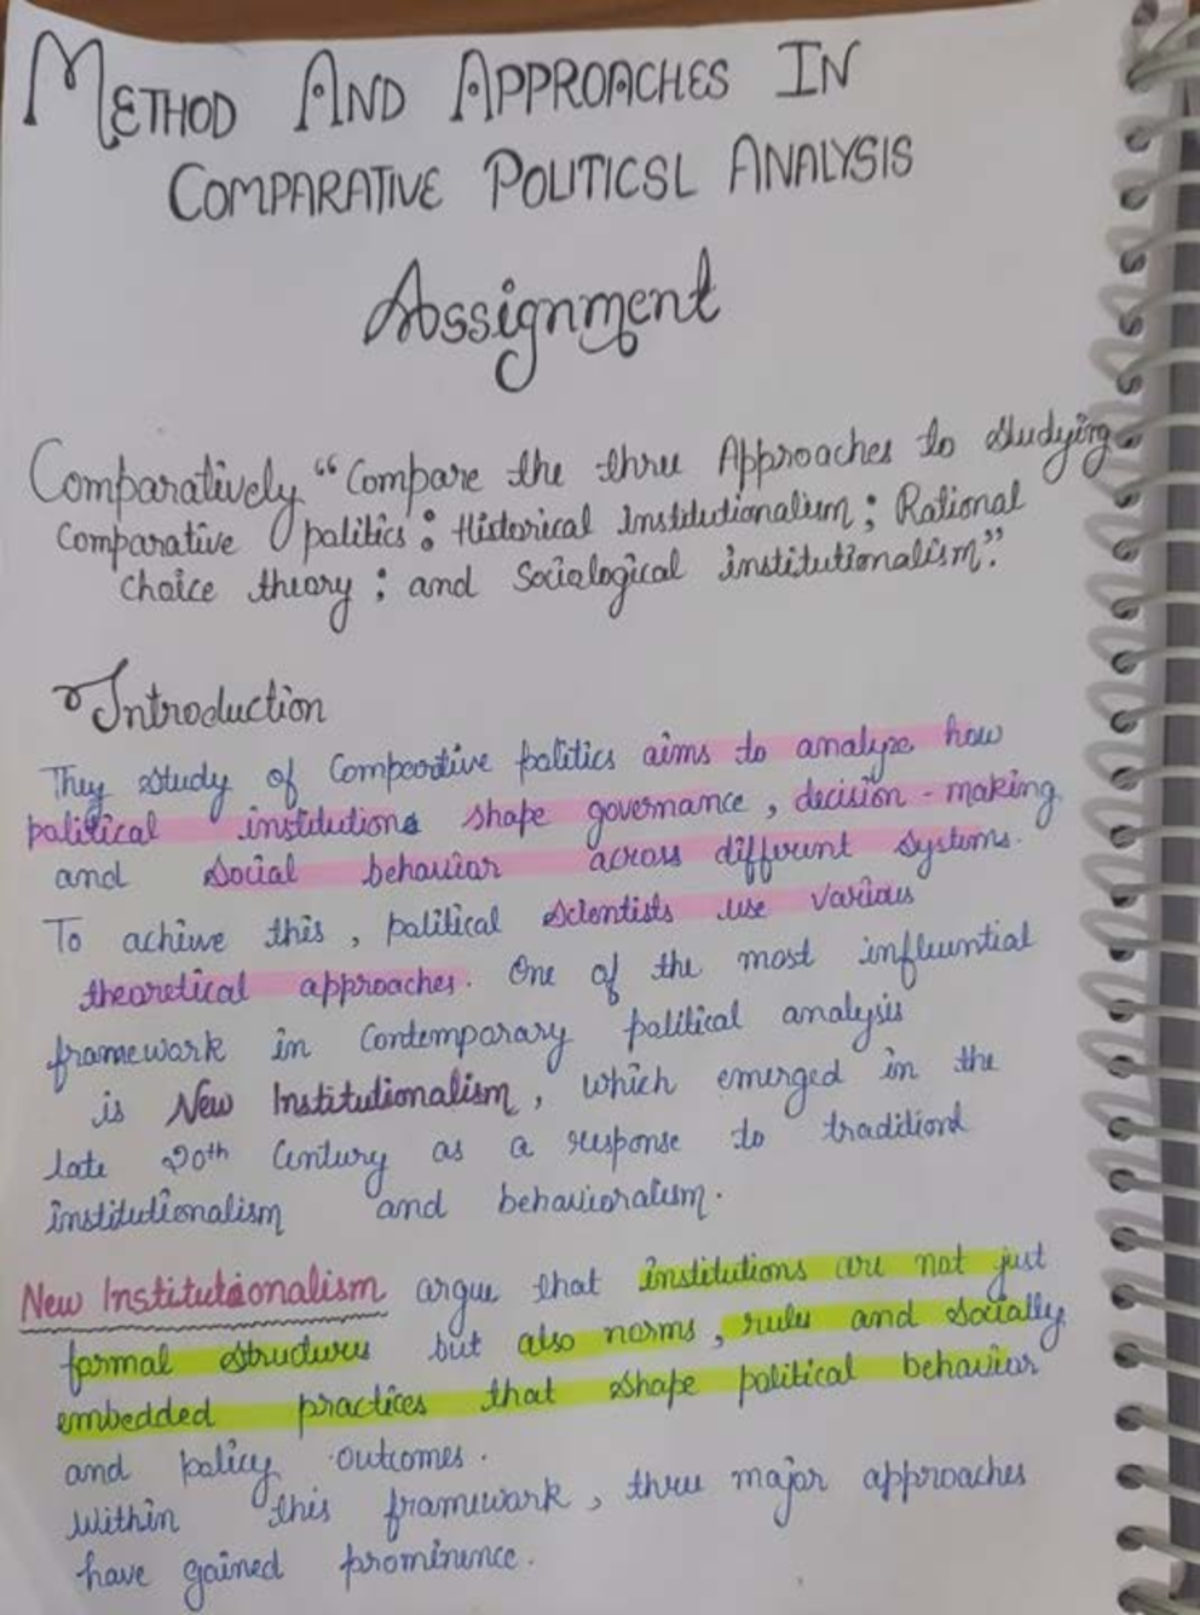 METHOD AND APPROACHES IN
COMPARATIVE POLITICSL ANALYSIS
Assignment
Comparatively "Compare the three Approaches to studying
Comparative politics: Historical Institutionalism; Rational
Choice theory; and Sociological institutionalism".
Introduction
They study of Comparative politics aims to analyze how
political institutions shape governance, decision-making
and social behavior across different systems.
To achieve this, political scientists use various
theoretical approaches. One of the most influential
framework in Contemporary political analysis
is New Institutionalism, which emerged in the
late 20th Century as a response to traditional
institutionalism and behavioralism.
New Institutionalism argue that institutions are not just
formal structures but also norms, rules and socially
embedded practices that shape political behavior
and policy outcomes.
Within this framework, three major approaches
have gained prominence.